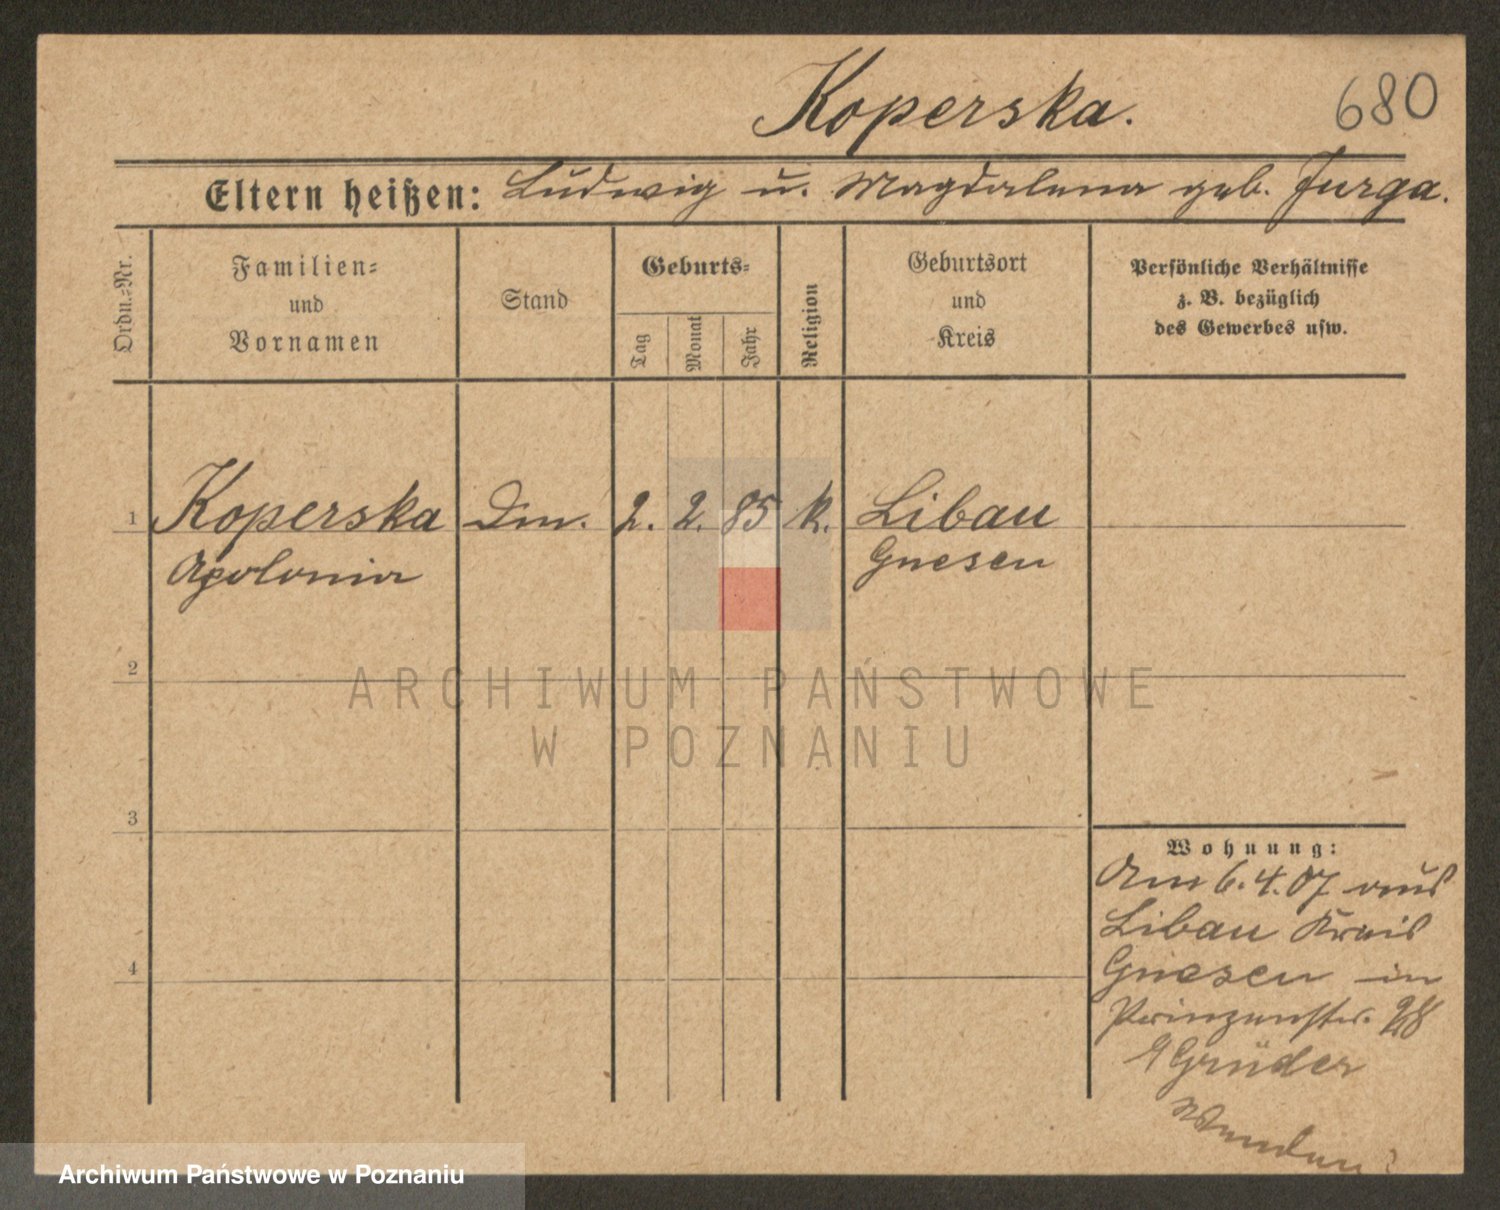 Koperska.
680
Eltern heißen: Ludwig u. Magdalena geb. Jurga.
Ordn.-Nr.
Familien-
und
Vornamen
Stand
Geburts-
Tag
Monat
Jahr
Religion
Geburtsort
und
Kreis
Persönliche Verhältnisse
z. B. bezüglich
des Gewerbes usw.
1 Koperska 2. 2. 85 k. Libau
Apolonia Gnesen
2
ARCHIWUM PAŃSTWOWE
W POZNANIU
3
Wohnung:
Am 6.4.07 aus
Libau Kreis
4
Gnesen in
Prinzenstr.
Grüder
Archiwum Państwowe w Poznaniu